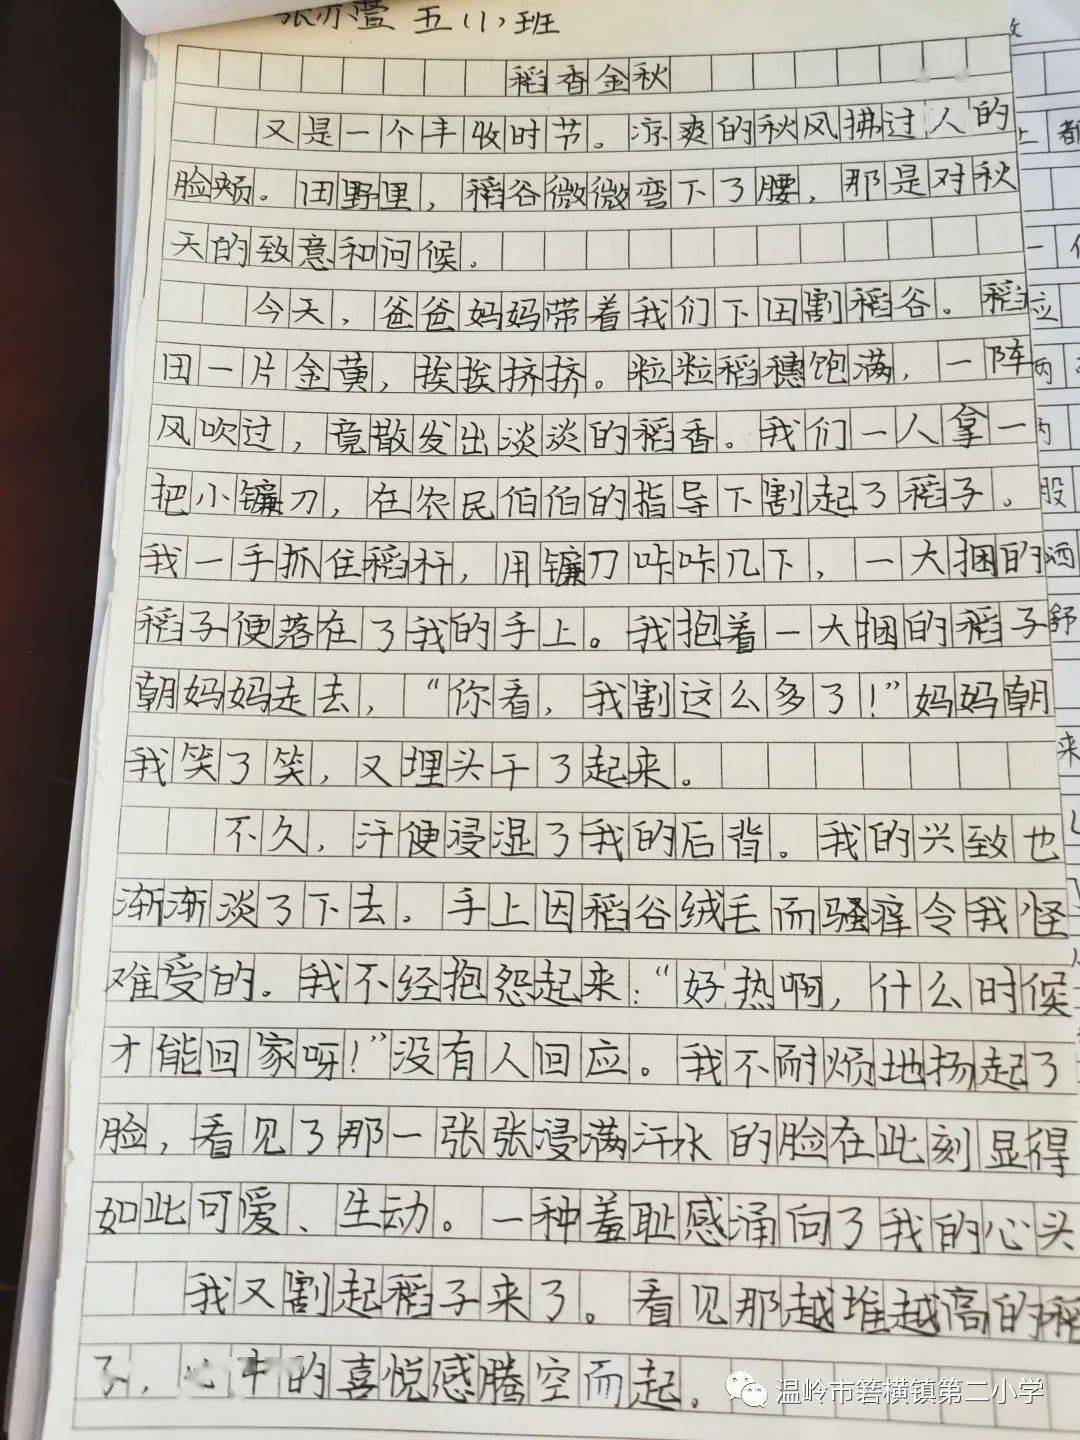 张亦萱 五(1)班
稻香金秋
又是一个丰收时节。凉爽的秋风拂过人的
脸颊。田野里，稻谷微微弯下了腰，那是对秋
天的致意和问候。
今天，爸爸妈妈带着我们下田割稻谷。稻
田一片金黄，挨挨挤挤。粒粒稻穗饱满，一阵
风吹过，竟散发出淡淡的稻香。我们一人拿一
把小镰刀，在农民伯伯的指导下割起了稻子。
我一手抓住稻秆，用镰刀咔咔几下，一大捆的
稻子便落在了我的手上。我抱着一大捆的稻子
朝妈妈走去，“你看，我割这么多了！”妈妈朝
我笑了笑，又埋头干了起来。
不久，汗便浸湿了我的后背。我的兴致也
渐渐淡了下去。手上因稻谷绒毛而骚痒令我怪
难受的。我不经抱怨起来：“好热啊，什么时候
才能回家呀！”没有人回应。我不耐烦地扬起了
脸，看见了那一张张浸满汗水的脸在此刻显得
如此可爱、生动。一种羞耻感涌向了我的心头
我又割起稻子来了。看见那越堆越高的稻
子，心中的喜悦感腾空而起。
温岭市箬横镇第二小学